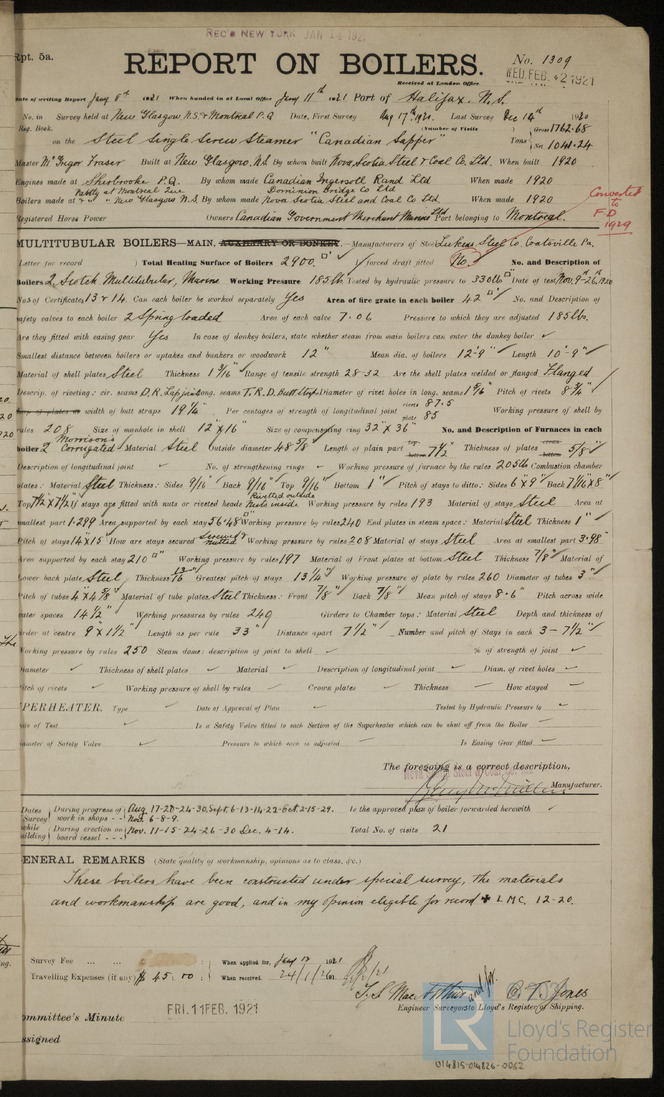 REC'D NEW YORK JAN 14 1921
Rpt. 5a.
REPORT ON BOILERS.
No. 1309
Received at London Office
WED. FEB. -2 1921
Date of writing Report Jany 8th 1921 When handed in at Local Office Jany 11th 1921 Port of Halifax. N.S.
No. in Survey held at New Glasgow N.S. & Montreal P.Q Date, First Survey Aug 17th 1920. Last Survey Dec 14th 1920
Reg. Book. (Number of Visits
on the Steel Single Screw Steamer "Canadian Sapper" Tons Gross 1762.68 Net 1041.24
Master Mc Gregor Fraser Built at New Glasgow, N.S By whom built Nova Scotia Steel & Coal Co. Ltd. When built 1920
Engines made at Sherbrooke P.Q. By whom made Canadian Ingersoll Rand Ltd When made 1920
Partly at Montreal Que Dominion Bridge Co Ltd
Boilers made at & " " New Glasgow N.S. By whom made Nova Scotia Steel and Coal Co Ltd. When made 1920
Registered Horse Power Owners Canadian Government Merchant Marine Ltd Port belonging to Montreal.
Converted to F.D 1929
MULTITUBULAR BOILERS—MAIN, AUXILIARY OR DONKEY.—Manufacturers of Steel Lukens Steel Co. Coatsville Pa.
(Letter for record ) Total Heating Surface of Boilers 2900 □' Is forced draft fitted No. No. and Description of
Boilers 2 Scotch Multitubular, Marine Working Pressure 185 lb Tested by hydraulic pressure to 330 lb □" Date of test Nov. 9th-26th 1920
No. of Certificate 13 & 14. Can each boiler be worked separately Yes Area of fire grate in each boiler 42 □' No. and Description of
safety valves to each boiler 2 Spring loaded Area of each valve 7.06 Pressure to which they are adjusted 185 lbs.
Are they fitted with easing gear Yes In case of donkey boilers, state whether steam from main boilers can enter the donkey boiler ✓
Smallest distance between boilers or uptakes and bunkers or woodwork 12" Mean dia. of boilers 12'-9" Length 10'-9"
Material of shell plates Steel Thickness 1 3/16" Range of tensile strength 28-32 Are the shell plates welded or flanged Flanged
Descrip. of riveting: cir. seams D.R. Lap joint long. seams T.R.D. Butt Strap Diameter of rivet holes in long. seams 1 5/16" Pitch of rivets 8 3/4"
Lap of plates or width of butt straps 19 1/4" Per centages of strength of longitudinal joint rivets 87.5 plate 85 Working pressure of shell by
rules 208 Size of manhole in shell 12" x 16" Size of compensating ring 32" x 36" No. and Description of Furnaces in each
boiler 2 Morrison's Corrugated Material Steel Outside diameter 48 5/8" Length of plain part top bottom 7 1/2" Thickness of plates crown bottom 5/8"
Description of longitudinal joint ✓ No. of strengthening rings ✓ Working pressure of furnace by the rules 205 lb Combustion chamber
plates: Material Steel Thickness: Sides 9/16" Back 9/16" Top 9/16" Bottom 1" Pitch of stays to ditto: Sides 6" x 9" Back 7 7/16" x 8"
Top 7 1/2" x 7 1/2" If stays are fitted with nuts or riveted heads Rivetted outside Nuts inside Working pressure by rules 193 Material of stays Steel Area at
smallest part 1.299 Area supported by each stay 56.48 □" Working pressure by rules 240 End plates in steam space: Material Steel Thickness 1"
Pitch of stays 14" x 15" How are stays secured Screwed & nutted Working pressure by rules 208 Material of stays Steel Area at smallest part 3.98
Area supported by each stay 210 □" Working pressure by rules 197 Material of Front plates at bottom Steel Thickness 7/8" Material of
Lower back plate Steel Thickness 13/16 Greatest pitch of stays 13 1/4" Working pressure of plate by rules 260 Diameter of tubes 3"
Pitch of tubes 4" x 4 3/8" Material of tube plates Steel Thickness: Front 7/8" Back 7/8" Mean pitch of stays 8.6" Pitch across wide
water spaces 14 1/2" Working pressures by rules 249 Girders to Chamber tops: Material Steel Depth and thickness of
girder at centre 9" x 1 1/2" Length as per rule 33" Distance apart 7 1/2" Number and pitch of Stays in each 3 - 7 1/2"
Working pressure by rules 250 Steam dome: description of joint to shell ✓ % of strength of joint ✓
Diameter ✓ Thickness of shell plates ✓ Material ✓ Description of longitudinal joint ✓ Diam. of rivet holes ✓
Pitch of rivets ✓ Working pressure of shell by rules ✓ Crown plates ✓ Thickness ✓ How stayed ✓
PERHEATER. Type ✓ Date of Approval of Plan ✓ Tested by Hydraulic Pressure to ✓
Date of Test ✓ Is a Safety Valve fitted to each Section of the Superheater which can be shut off from the Boiler ✓
Diameter of Safety Valve ✓ Pressure to which each is adjusted ✓ Is Easing Gear fitted ✓
The foregoing is a correct description,
Manufacturer.
Dates of Survey while building
During progress of work in shops - - Aug. 17-20-24-30. Sept. 6-13-14-22. Oct. 2-15-29. Nov. 6-8-9.
Is the approved plan of boiler forwarded herewith ✓
During erection on board vessel - - - Nov. 11-15-24-26-30 Dec. 4-14.
Total No. of visits 21
ENERAL REMARKS (State quality of workmanship, opinions as to class, &c.)
These boilers have been constructed under special survey, the materials
and workmanship are good, and in my opinion eligible for record + L.M.C. 12-20.
Survey Fee ... ... When applied for, Jany 12 1921
Travelling Expenses (if any) $ 45.00 When received, 24/1/21
T. S. MacArthur and for C. T. S. Jones
Engineer Surveyors to Lloyd's Register of Shipping.
FRI. 11 FEB. 1921
ommittee's Minute
ssigned
LR
Lloyd's Register
Foundation
014815-014826-0052